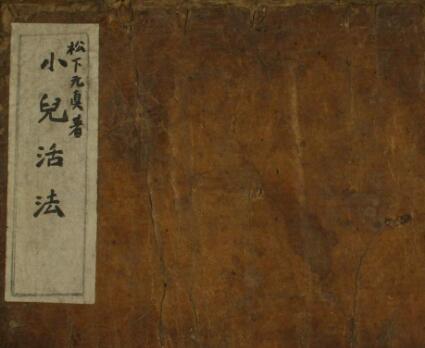 松下元真著
小兒活法